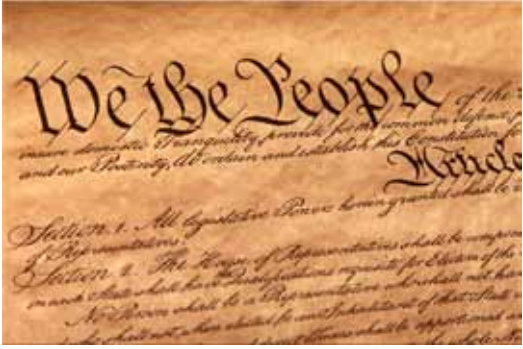 We the People of the
insure domestic Tranquility, provide for the common defence, p
and our Posterity, do ordain and establish this Constitution for
Article
Section 1. All legislative Powers herein granted shall be v
of Representatives.
Section 2. The House of Representatives shall be compose
in each State shall have the Qualifications requisite for Electors of the
No Person shall be a Representative who shall not have
who shall not, when elected, be an Inhabitant of that State
shall be apportioned a